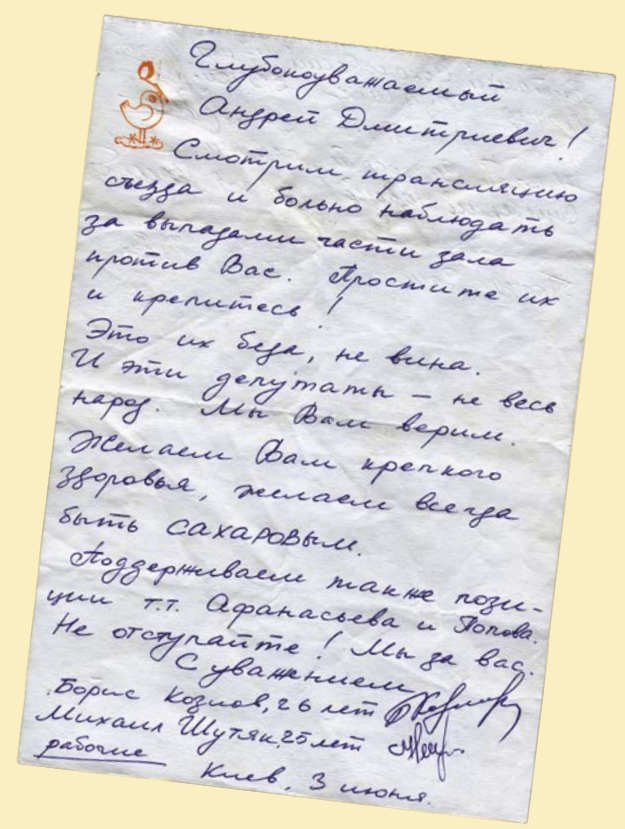 Глубокоуважаемый
Андрей Дмитриевич!
Смотрим трансляцию
съезда и больно наблюдать
за выпадами части зала
против Вас. Простите их
и крепитесь!
Это их беда, не вина.
И эти депутаты – не весь
народ. Мы Вам верим.
Желаем Вам крепкого
здоровья, желаем всегда
быть САХАРОВЫМ.
Поддерживаем также пози-
ции т.т. Афанасьева и Попова.
Не отступайте! Мы за вас.
С уважением
Борис Козлов, 26 лет
Михаил Шутяк, 25 лет
рабочие
Киев, 3 июня.